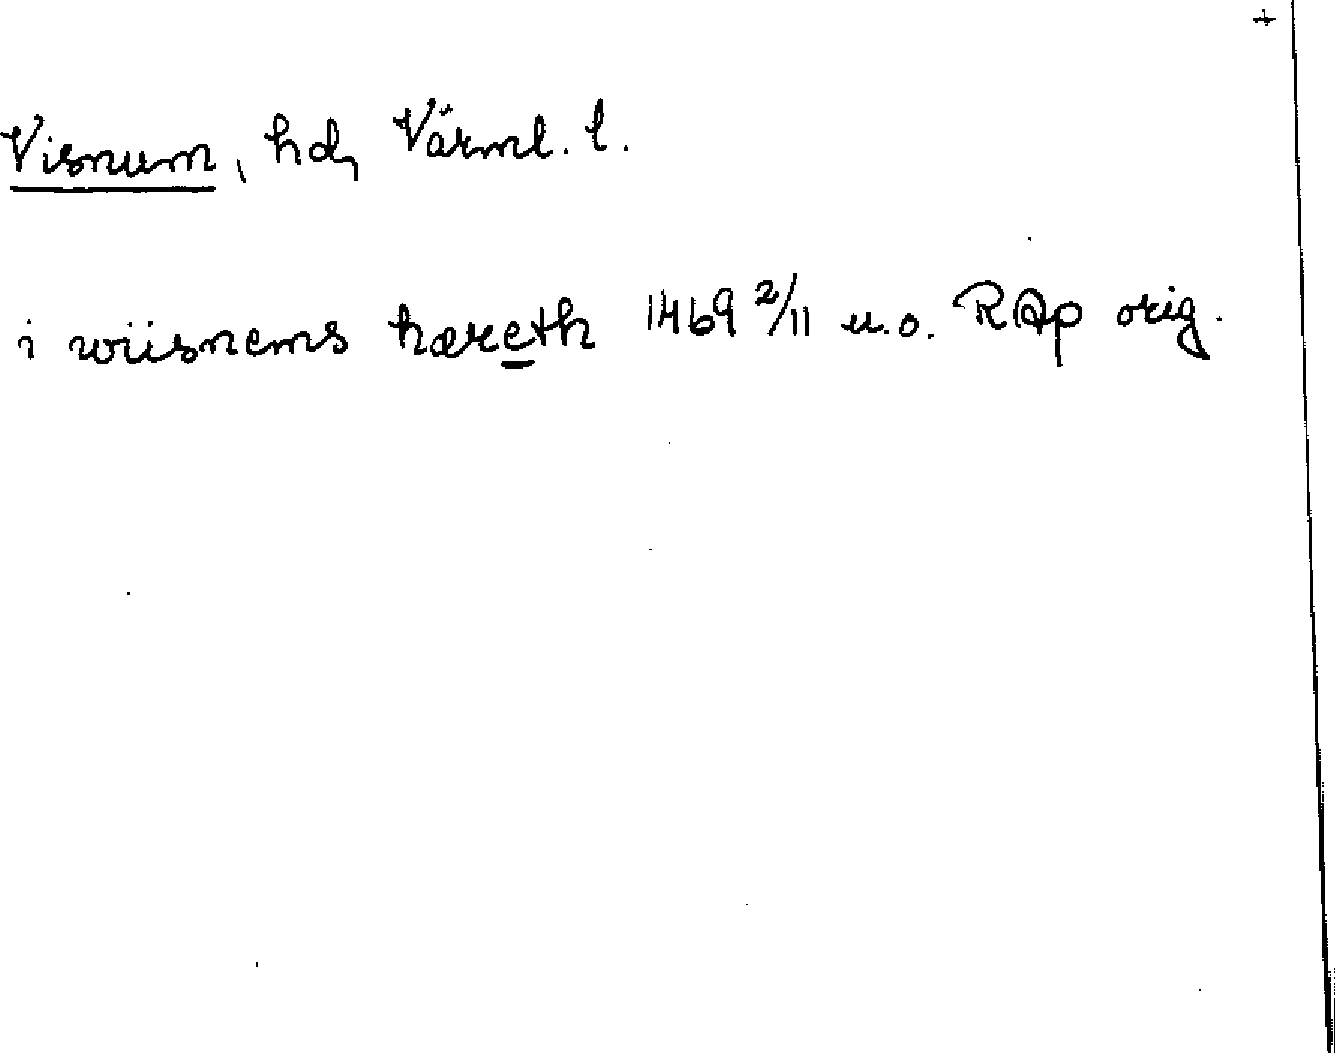 +
Visnum, hd, Värml. l.
i wiisnems hæreth 1469 2/11 u.o. RAp orig.